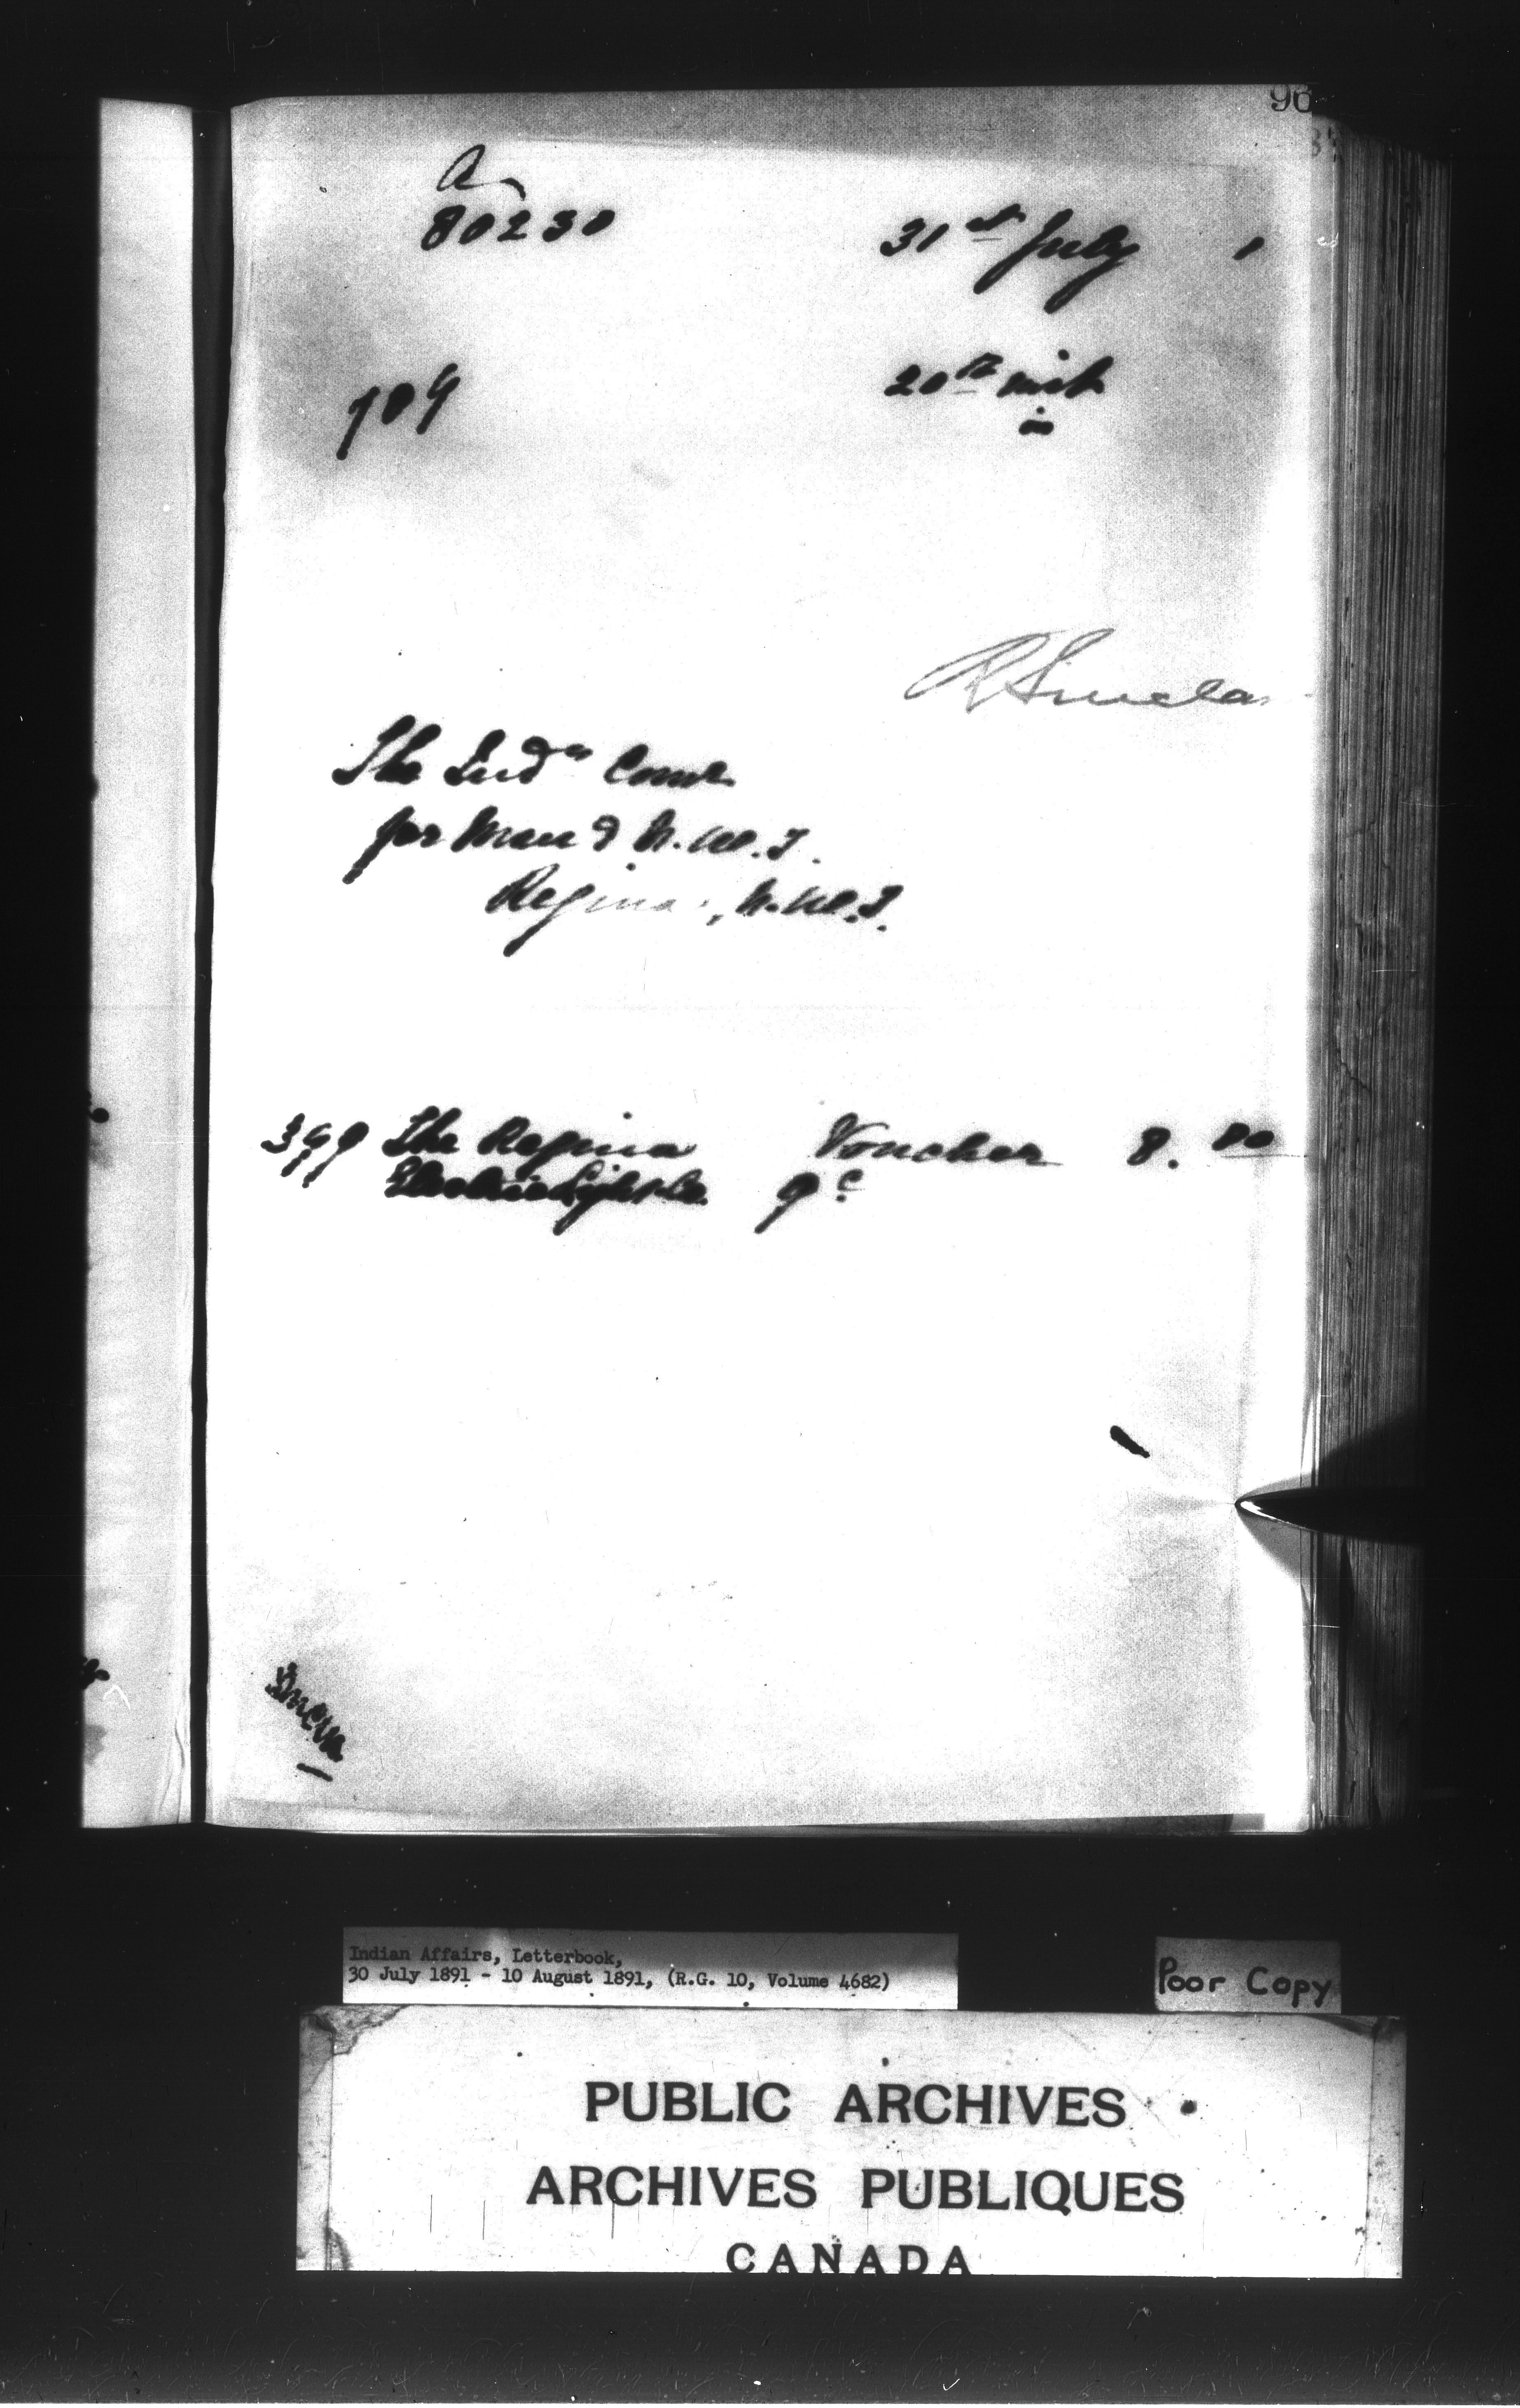 96
a
80230 31st July 1
709 20th inst
R Sincla
The Indn Comr
for Man & N.W.T.
Regina, N.W.T.
399 The Regina Voucher 8.00
Electric Light Co. 9c
Indian Affairs, Letterbook,
30 July 1891 - 10 August 1891, (R.G. 10, Volume 4682)
Poor Copy
PUBLIC ARCHIVES
ARCHIVES PUBLIQUES
CANADA